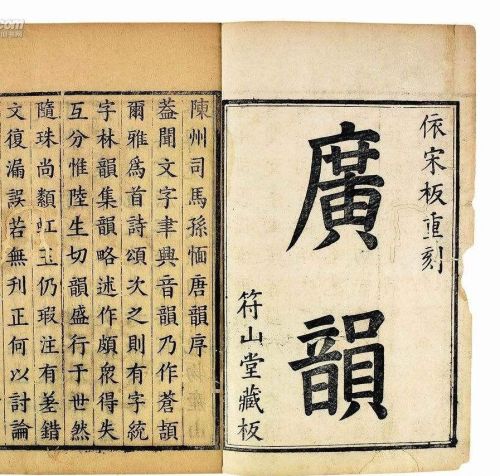 依宋板重刻
廣韻
符山堂藏板
陳州司馬孫愐唐韻序
蓋聞文字聿興音韻乃作蒼頡
爾雅爲首詩頌次之則有字統
字林韻集韻略述作頗衆得失
互分惟陸生切韻盛行于世然
隨珠尚纇虹玉仍瑕注有差錯
文復漏誤若無刊正何以討論